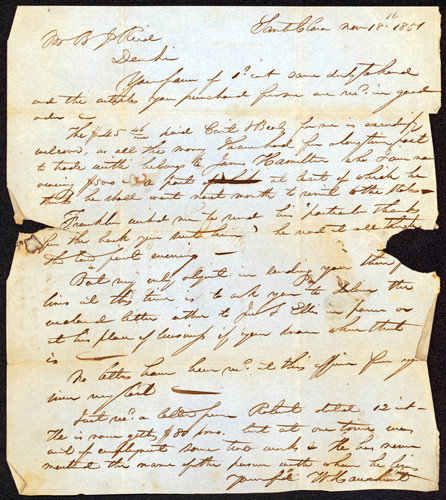 Santa Clara Nov 18th 1851
Mr B J Reid
Dear Sir
Your favor of 1st inst came duly to hand
and the articles you purchased for me are recd in good
order
The $45 paid Capt for me is
welcome, as all the money I have had for a long time past
to trade with belongs to James Hamilton who I am now
owing $500 a part at least of which he
thinks he shall want next month to remit to the States
Franklin wished me to send his particular thanks
for the book you sent him, he read it all through
the two past evenings
But my only object in sending you these few
lines at this time is to ask you to deliver the
enclosed letter either to Jas S Ellis in person or
at his place of business if you know where that
is
No letters have been recd at this office for you
since my last
Just recd a letter from Robert dated 12 inst
He is now getting $80 pr mo. but at one time was
out of employment some two weeks He has never
mentioned the name of the person with whom he lives
Yours &c W